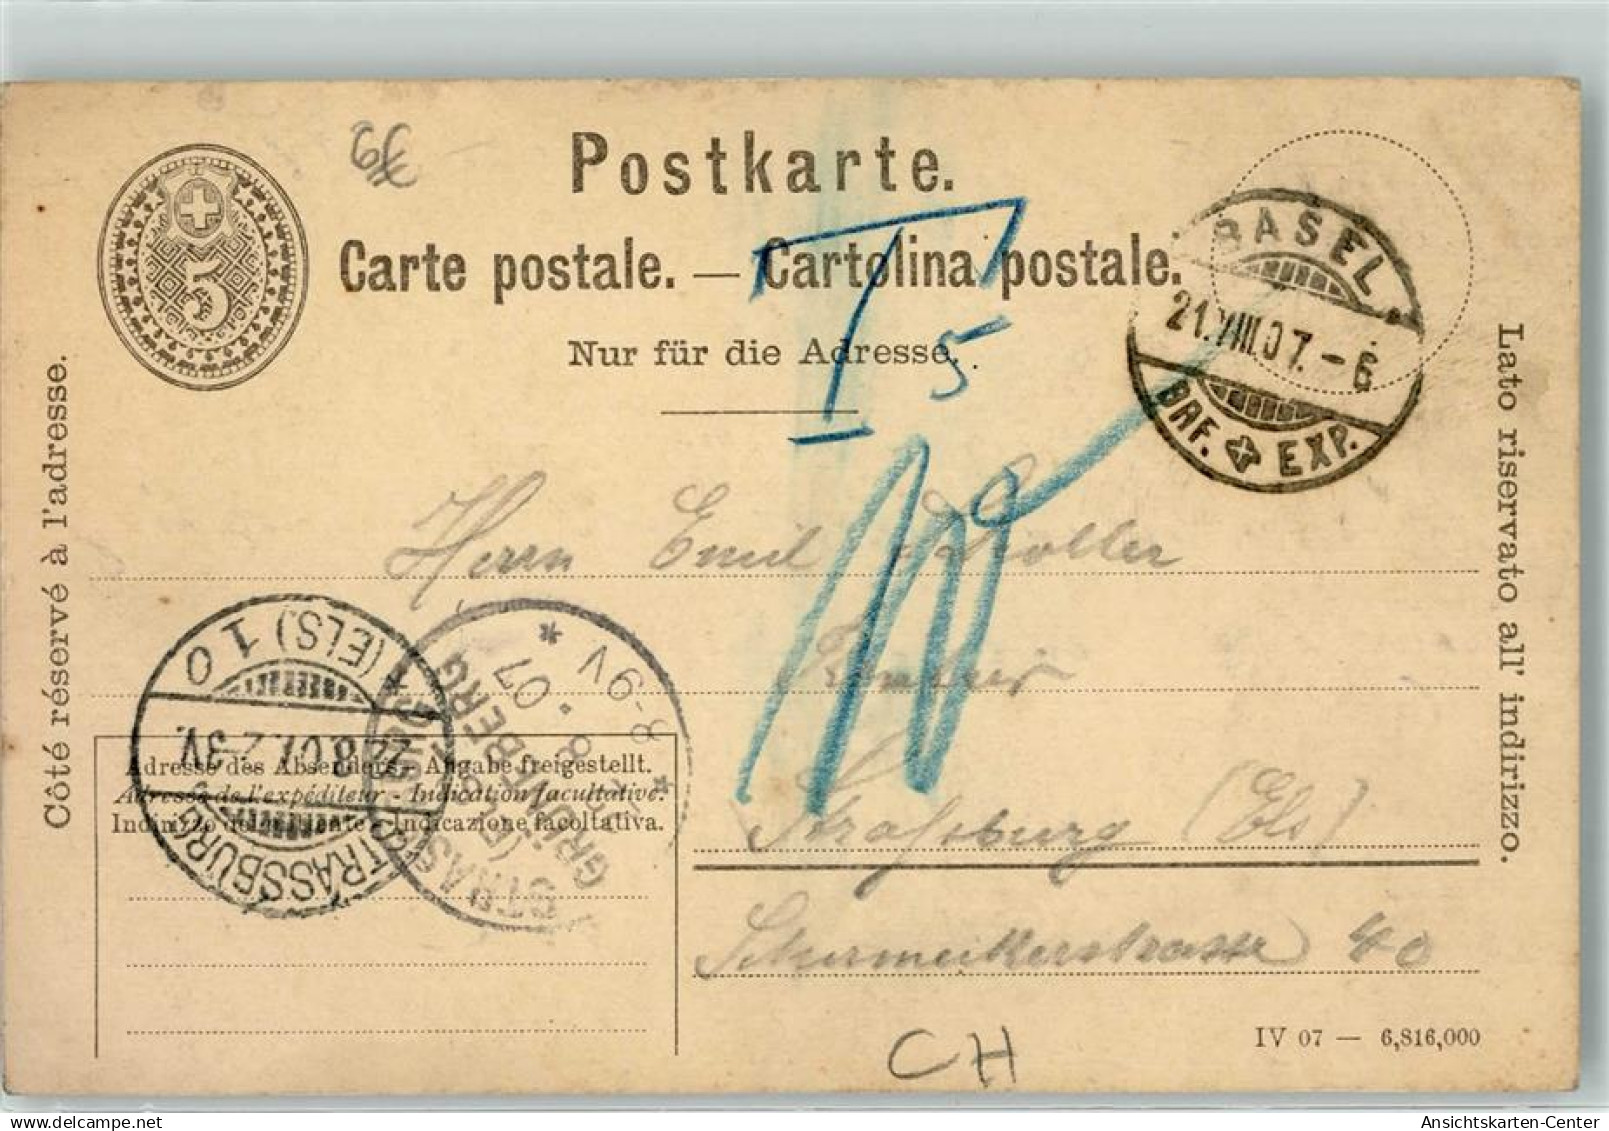 Postkarte.
Carte postale. — Cartolina postale.
Nur für die Adresse.
5
T
5
10
BASEL
21.VIII.07.-6
BRF. EXP.
Côté réservé à l'adresse.
Lato riservato all' indirizzo.
Herrn Emil Koller
Strassburg (Els)
Schirmeckerstrasse 40
STRASSBURG
(ELS.) 10
22.8.07.2-3V.
STRASSBURG
(ELS.)
GRÜNEBERG
8. 07
8-9V
Adresse des Absenders - Angabe freigestellt.
Adresse de l'expéditeur - Indication facultative.
Indirizzo del mittente - Indicazione facoltativa.
IV 07 — 6,816,000
CH
Ansichtskarten-Center